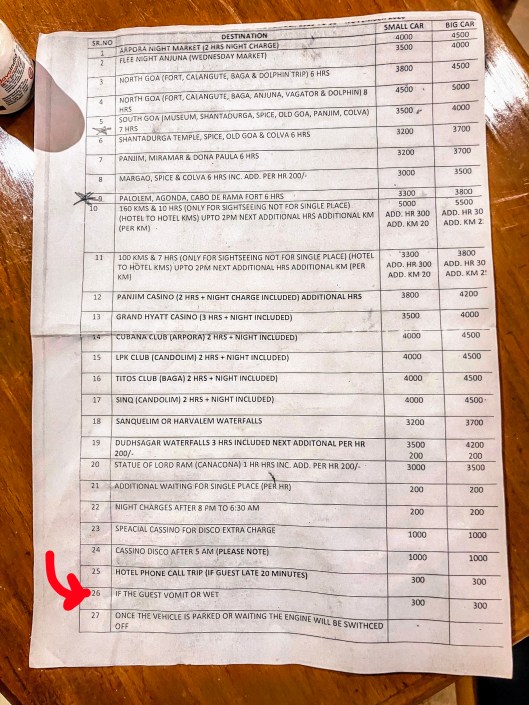 SR.NO DESTINATION SMALL CAR BIG CAR
1 ARPORA NIGHT MARKET (2 HRS NIGHT CHARGE) 4000 4500
2 FLEE NIGHT ANJUNA (WEDNESDAY MARKET) 3500 4000
3 NORTH GOA (FORT, CALANGUTE, BAGA & DOLPHIN TRIP) 6 HRS 3800 4500
4 NORTH GOA (FORT, CALANGUTE, BAGA, ANJUNA, VAGATOR & DOLPHIN) 8 4500 5000
HRS
5 SOUTH GOA (MUSEUM, SHANTADURGA, SPICE, OLD GOA, PANJIM, COLVA) 3500 4000
7 HRS
6 SHANTADURGA TEMPLE, SPICE, OLD GOA & COLVA 6 HRS 3200 3700
7 PANJIM, MIRAMAR & DONA PAULA 6 HRS 3200 3700
8 MARGAO, SPICE & COLVA 6 HRS INC. ADD. PER HR 200/- 3000 3500
9 PALOLEM, AGONDA, CABO DE RAMA FORT 6 HRS 3300 3800
10 160 KMS & 10 HRS (ONLY FOR SIGHTSEEING NOT FOR SINGLE PLACE) 5000 5500
(HOTEL TO HOTEL KMS) UPTO 2PM NEXT ADDITIONAL HRS ADDITIONAL KM ADD. HR 300 ADD. HR 30
(PER KM) ADD. KM 20 ADD. KM 2
11 100 KMS & 7 HRS (ONLY FOR SIGHTSEEING NOT FOR SINGLE PLACE) (HOTEL 3300 3800
TO HOTEL KMS) UPTO 2PM NEXT ADDITIONAL HRS ADDITIONAL KM (PER ADD. HR 300 ADD. HR 30
KM) ADD. KM 20 ADD. KM 2
12 PANJIM CASINO (2 HRS + NIGHT CHARGE INCLUDED) ADDITIONAL HRS 3800 4200
13 GRAND HYATT CASINO (3 HRS + NIGHT INCLUDED) 3500 4000
14 CUBANA CLUB (ARPORA) 2 HRS + NIGHT INCLUDED) 4000 4500
15 LPK CLUB (CANDOLIM) 2 HRS + NIGHT INCLUDED) 4000 4500
16 TITOS CLUB (BAGA) 2 HRS + NIGHT INCLUDED) 4000 4500
17 SINQ (CANDOLIM) 2 HRS + NIGHT INCLUDED) 4000 4500
18 SANQUELIM OR HARVALEM WATERFALLS 3200 3700
19 DUDHSAGAR WATERFALLS 3 HRS INCLUDED NEXT ADDITONAL PER HR 3500 4200
200/- 200 200
20 STATUE OF LORD RAM (CANACONA) 1 HR HRS INC. ADD. PER HR 200/- 3000 3500
21 ADDITIONAL WAITING FOR SINGLE PLACE (PER HR) 200 200
22 NIGHT CHARGES AFTER 8 PM TO 6:30 AM 200 200
23 SPEACIAL CASSINO FOR DISCO EXTRA CHARGE 1000 1000
24 CASSINO DISCO AFTER 5 AM (PLEASE NOTE) 1000 1000
25 HOTEL PHONE CALL TRIP (IF GUEST LATE 20 MINUTES) 300 300
26 IF THE GUEST VOMIT OR WET 300 300
27 ONCE THE VEHICLE IS PARKED OR WAITING THE ENGINE WILL BE SWITHCED
OFF